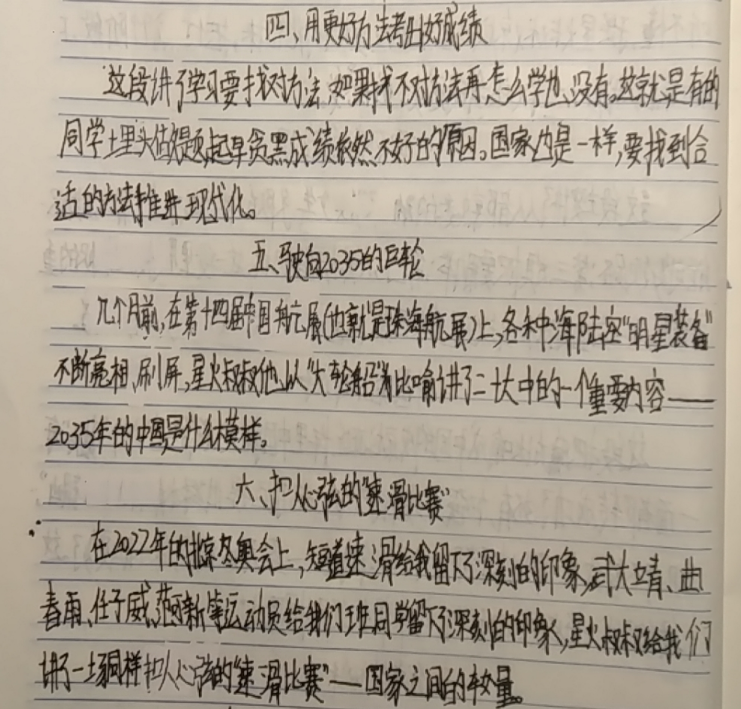 四、用更好方法考出好成绩
这段讲了学习要找对方法,如果找不对方法再怎么学也没有。这就是有的
同学埋头做题,起早贪黑成绩依然不好的原因。国家也是一样,要找到合
适的方法推进现代化。
五、驶向2035的巨轮
几个月前,在第十四届中国航展(也就是珠海航展)上,各种海陆空“明星装备”
不断亮相、刷屏,星火叔叔他以“大轮船”为比喻讲了二十大中的一个重要内容——
2035年的中国是什么模样。
六、扣人心弦的“速滑比赛”
在2022年的北京冬奥会上,短道速滑给我留下了深刻的印象,武大靖、曲
春雨、任子威、范可新等运动员给我们班同学留下了深刻的印象,星火叔叔给我们
讲了一场同样扣人心弦的“速滑比赛”——国家之间的较量。